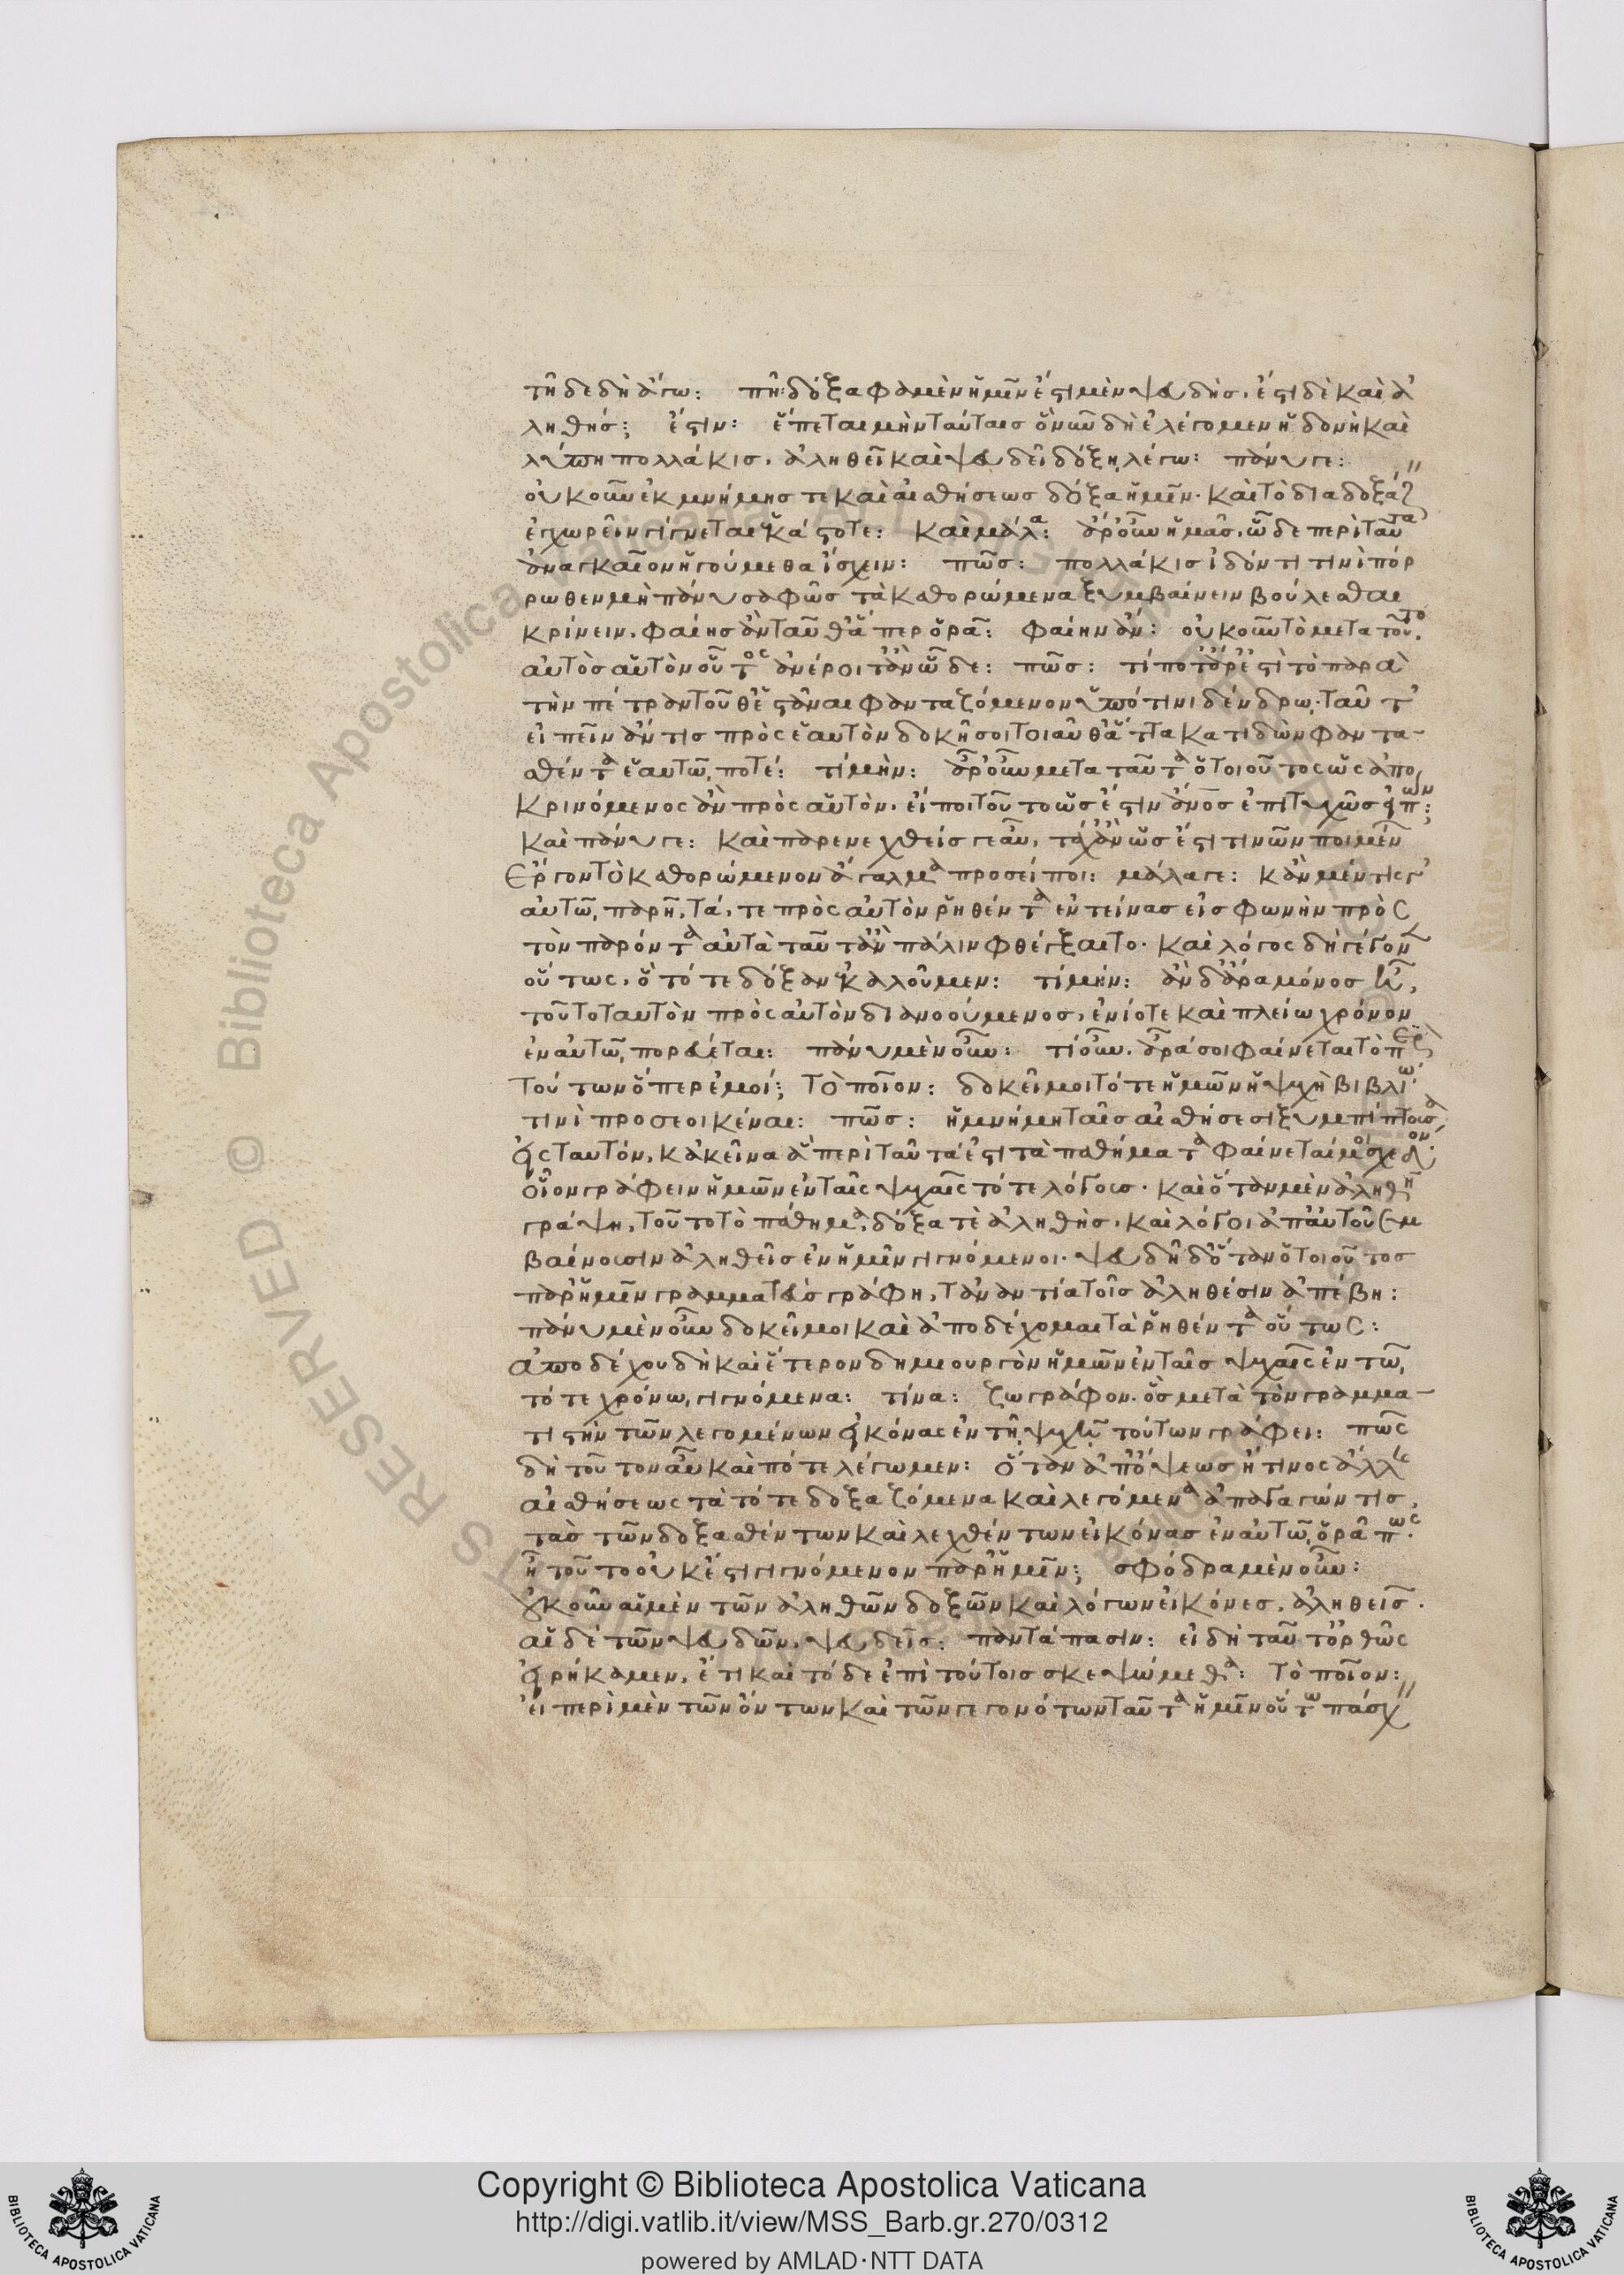 τῆδε δὴ ἄγω: πῆ: δόξα φαμὲν ἡμῖν ἔστι μὲν ψευδὴσ, ἔστι δὲ καὶ ἀ
ληθήσ; ἔστιν: ἕπεται μὴν ταύταισ ὃ νῦν δὴ ἐλέγομεν ἡδονὴ καὶ
λύπη πολλάκισ, ἀληθεῖ καὶ ψευδεῖ δόξη λέγω: πάνυ γε:
οὐκοῦν ἐκ μνήμησ τε καὶ αἰσθήσεωσ δόξα ἡμῖν. καὶ τὸ διαδοξάζ
ἐγχωρεῖν γίγνεται ἑκάστοτε: καὶ μάλα: ἆρ' οὖν ἡμᾶσ, ὧδε περὶ ταῦτα
ἀναγκαῖον ἡγούμεθα ἴσχειν: πῶσ: πολλάκισ ἰδόντι τινὶ πόρ
ρωθεν μὴ πάνυ σαφῶσ τὰ καθορώμενα ξυμβαίνειν βούλεσθαι
κρίνειν, φαίησ ἂν ταῦθ' ἅπερ ὁρᾶ: φαίην ἄν: οὐκοῦν τὸ μετα τοῦτο.
αὐτὸσ αὑτὸν οὗτος ἀνέροιτ' ἂν ὧδε: πῶσ: τί ποτ' ἄρ' ἐστὶ τὸ παρὰ
τὴν πέτραν τοῦθ' ἑστάναι φανταζόμενον ὑπό τινι δένδρω. ταῦτ'
εἰπεῖν ἄν τισ πρὸς ἑαυτὸν δοκῆ σοι τοιαῦθ' ἅττα κατιδὼν φαντα-
σθέντα ἑαυτῶ, ποτέ: τί μήν: ἆρ' οὖν μετα ταῦτα ὁ τοιοῦτος ὡς ἀπο
κρινόμενος ἂν πρὸς αὑτὸν, εἴποι τοῦτο ὡσ ἔστιν ἄνοσ ἐπιτυχῶσ εἰπών;
καὶ πάνυ γε: καὶ παρενεχθείσ γε αὖ, τάχ' ἂν ὡσ ἔστι τινῶν ποιμέν
ἔργον τὸ καθορώμενον ἄγαλμα προσείποι: μάλα γε: κἂν μέν τις γ'
αὐτῶ, παρῆ, τά, τε πρὸς αὐτὸν ῥηθέντα ἐντείνασ εἰσ φωνὴν πρὸς
τὸν παρόντα αὐτὰ ταῦτ' ἂν πάλιν φθέγξαιτο. καὶ λόγος δὴ γέγον
οὕτως, ὃ τότε δόξαν ἐκαλοῦμεν: τί μήν: ἂν δ' ἄρα μόνοσ ἦ,
τοῦτο ταυτὸν πρὸς αὐτὸν διανοούμενοσ, ἐνίοτε καὶ πλείω χρόνον
ἐν αὐτῶ, πορεύεται: πάνυ μὲν οὖν: τί οὖν. ἆρα σοι φαίνεται τὸ περὶ
τούτων ὅπερ ἐμοί; τὸ ποῖον: δοκεῖ μοι τότε ἡμῶν ἡ ψυχὴ βιβλίω
τινὶ προσεοικέναι: πῶσ: ἡ μνήμη ταῖσ αἰσθήσεσι ξυμπίπτουσα
εἰς ταυτόν, κἀκεῖνα ἃ περὶ ταῦτά ἐστι τὰ παθήματα φαίνεταί μοι σχεδὸν.
οἷον γράφειν ἡμῶν ἐν ταῖς ψυχαῖς τότε λόγουσ. καὶ ὅταν μὲν ἀληθῆ
γράψη, τοῦτο τὸ πάθημα, δόξα τὲ ἀληθὴσ, καὶ λόγοι ἀπ' αὐτοῦ συμ
βαίνουσιν ἀληθεῖσ ἐν ἡμῖν γιγνόμενοι. ψευδῆ δ' ὅταν ὁ τοιοῦτοσ
παρ' ἡμῖν γραμματεὺσ γράφη, τἀναντία τοῖσ ἀληθέσιν ἀπέβη:
πάνυ μὲν οὖν δοκεῖ μοι καὶ ἀποδέχομαι τὰ ῥηθέντα οὕτως:
ἀποδέχου δὴ καὶ ἕτερον δημιουργὸν ἡμῶν ἐν ταῖσ ψυχαῖς ἐν τῶ,
τότε χρόνω, γιγνόμενα: τίνα: ζωγράφον. ὃσ μετὰ τὸν γραμμα-
τιστὴν τῶν λεγομένων εἰκόνας ἐν τῆ, ψυχῆ τούτων γράφει: πῶς
δὴ τοῦτον αὖ καὶ πότε λέγωμεν: ὅταν ἀπ' ὄψεωσ ἤ τινος ἄλλης
αἰσθήσεως τὰ τότε δοξαζόμενα καὶ λεγόμενα ἀπαγαγών τισ,
τὰσ τῶν δοξασθέντων καὶ λεχθέντων εἰκόνασ ἐν αὑτῶ, ὁρᾶ πως.
ἢ τοῦτο οὐκ ἔστι γιγνόμενον παρ' ἡμῖν; σφόδρα μὲν οὖν:
οὐκοῦν αἱ μὲν τῶν ἀληθῶν δοξῶν καὶ λόγων εἰκόνεσ, ἀληθεῖσ.
αἱ δὲ τῶν ψευδῶν, ψευδεῖσ: παντάπασιν: εἰ δὴ ταῦτ' ὀρθῶς
εἰρήκαμεν, ἔτι καὶ τόδε ἐπὶ τούτοισ σκεψώμεθα: τὸ ποῖον:
εἰ περὶ μὲν τῶν ὄντων καὶ τῶν γεγονότων ταῦτα ἡμῖν οὕτω πάσχ
Copyright © Biblioteca Apostolica Vaticana
http://digi.vatlib.it/view/MSS_Barb.gr.270/0312
powered by AMLAD·NTT DATA
BIBLIOTECA APOSTOLICA VATICANA
BIBLIOTECA APOSTOLICA VATICANA